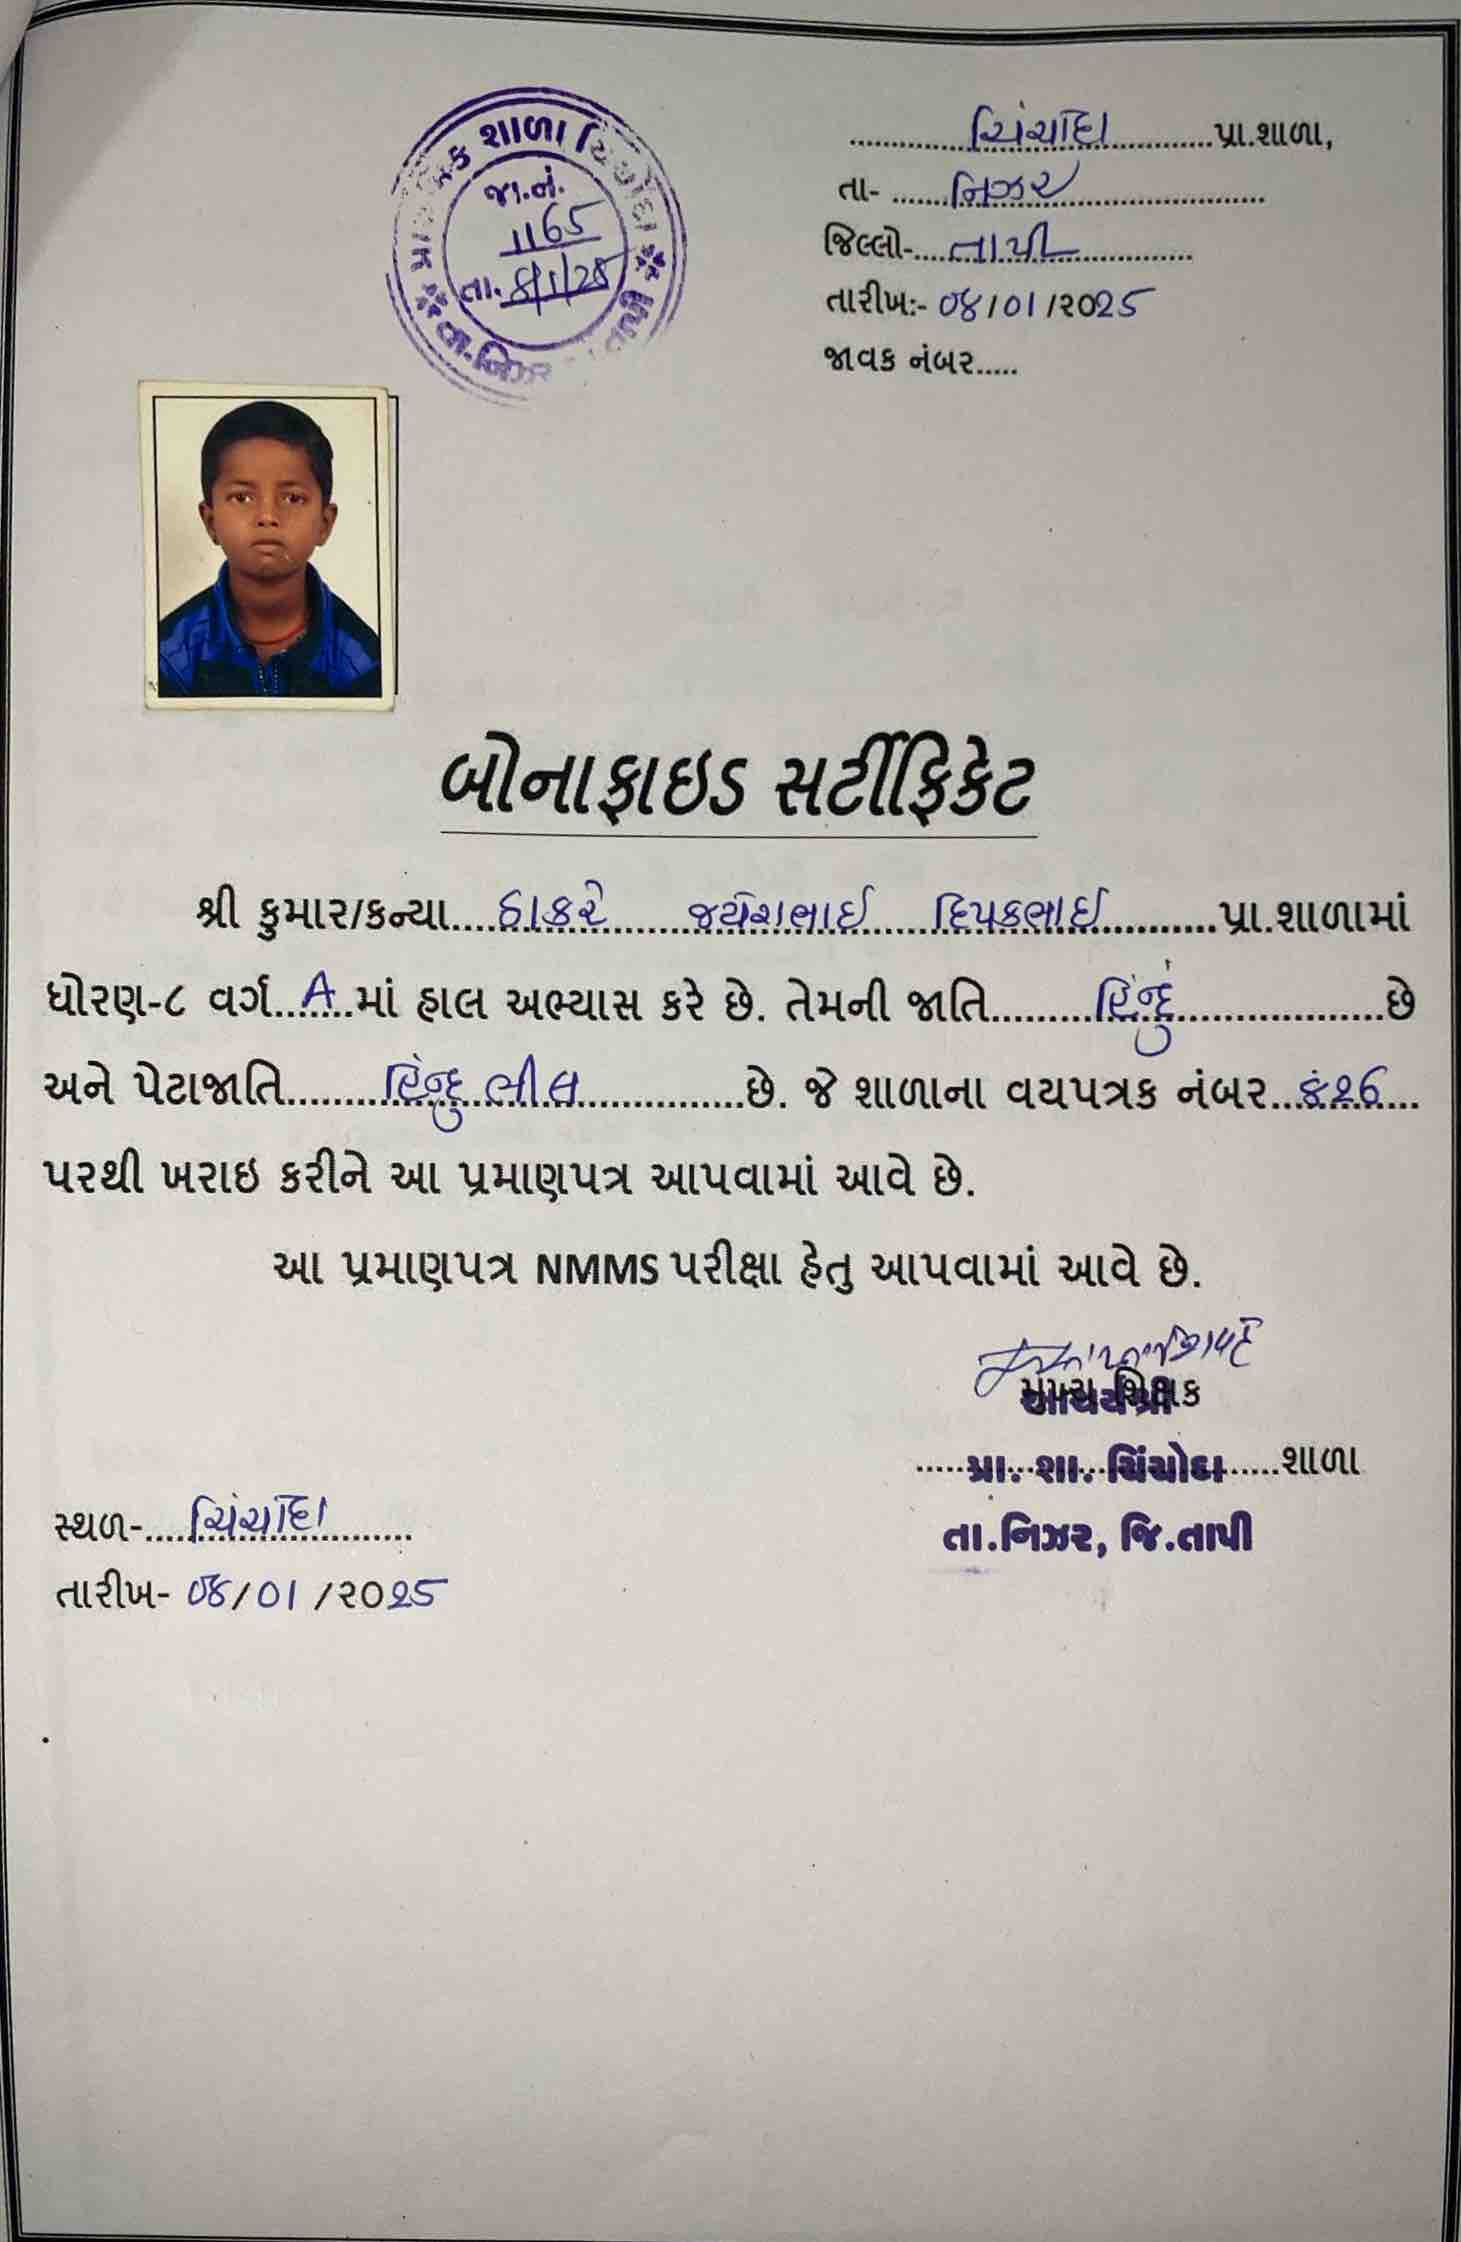 શાળા
જા.નં.
1165
તા. 8/1/25
તા.નિઝર
ચિંચોદા પ્રા.શાળા,
તા- નિઝર
જિલ્લો- તાપી
તારીખઃ- 08/01/૨૦25
જાવક નંબર.....
બોનાફાઇડ સર્ટીફિકેટ
શ્રી કુમાર/કન્યા....ઠાકરે જયેશભાઈ દિપકભાઈ....પ્રા.શાળામાં
ધોરણ-૮ વર્ગ..A..માં હાલ અભ્યાસ કરે છે. તેમની જાતિ....હિન્દુ....છે
અને પેટાજાતિ....હિન્દુ ભીલ....છે. જે શાળાના વયપત્રક નંબર...
પરથી ખરાઇ કરીને આ પ્રમાણપત્ર આપવામાં આવે છે.
આ પ્રમાણપત્ર NMMS પરીક્ષા હેતુ આપવામાં આવે છે.
મુખ્ય શિક્ષક
આચાર્યશ્રી
પ્રા. શા. ચિંચોદા શાળા
તા.નિઝર, જિ.તાપી
સ્થળ- ચિંચોદા
તારીખ- 08/01/૨૦25